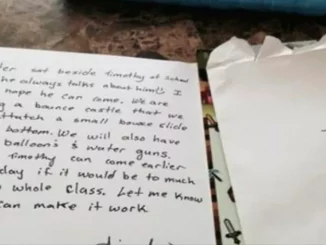 ter sat beside timothy at school
he always talks about him!! I
hope he can come. We are
g a bounce castle that we
attatch a small bounce slide
bottom. We will also have
balloon's & water guns.
timothy can come earlier
day if it would be to much
whole class. Let me know
can make it work